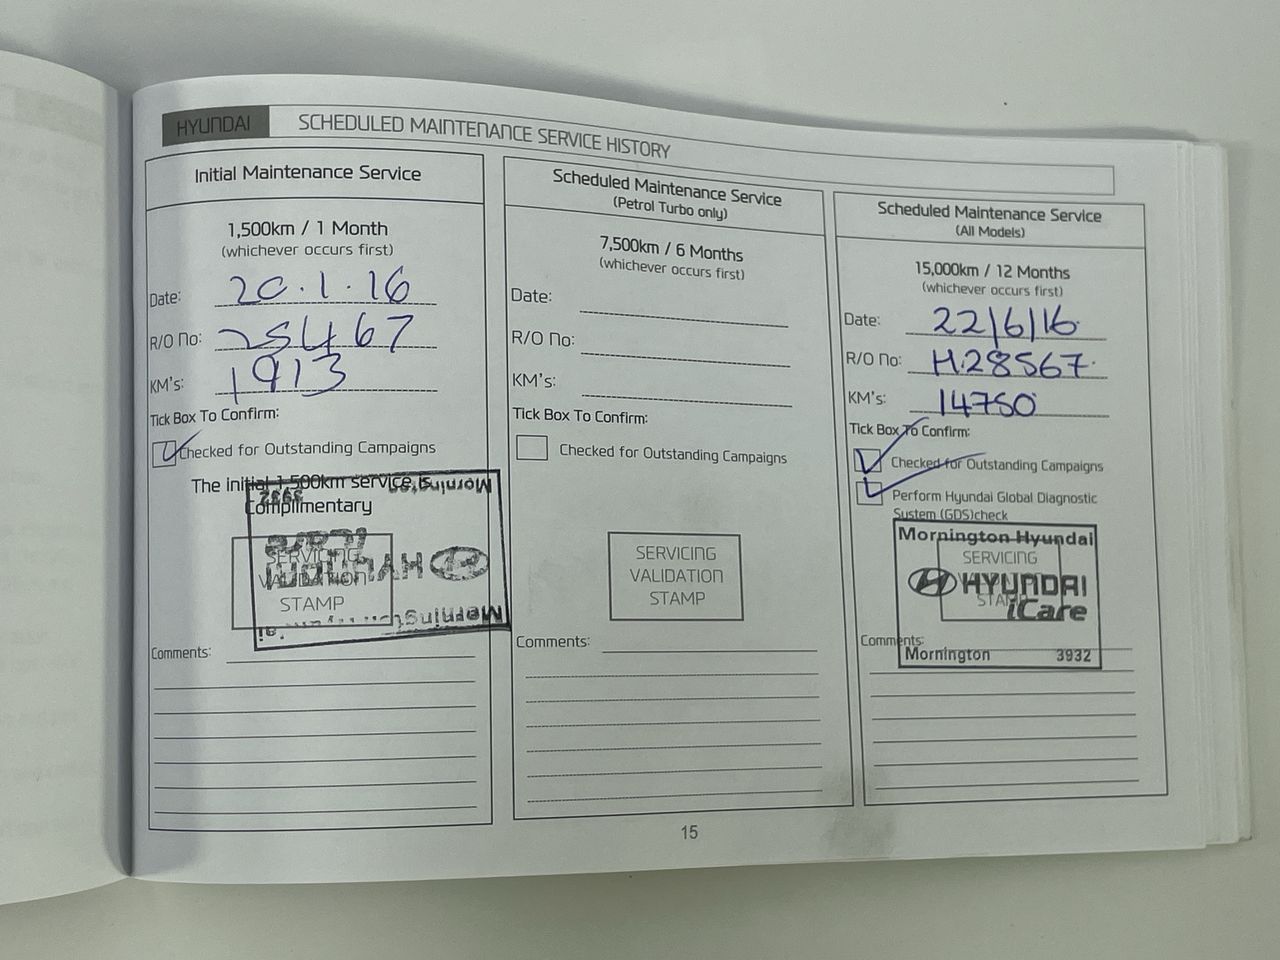 HYUNDAI
SCHEDULED MAINTENANCE SERVICE HISTORY
Initial Maintenance Service
1,500km / 1 Month
(whichever occurs first)
Date: 20.1.16
R/O No: 25467
KM's: 1913
Tick Box To Confirm:
Checked for Outstanding Campaigns
The initial 1,500km service is
Complimentary
Mornington
3932
iCare
HYUNDAI
SERVICING
VALIDATION
STAMP
Mornington Hyundai
Comments:
Scheduled Maintenance Service
(Petrol Turbo only)
7,500km / 6 Months
(whichever occurs first)
Date:
R/O No:
KM's:
Tick Box To Confirm:
Checked for Outstanding Campaigns
SERVICING
VALIDATION
STAMP
Comments:
Scheduled Maintenance Service
(All Models)
15,000km / 12 Months
(whichever occurs first)
Date: 22/6/16
R/O No: H28567
KM's: 14750
Tick Box To Confirm:
Checked for Outstanding Campaigns
Perform Hyundai Global Diagnostic
System (GDS)check
Mornington Hyundai
SERVICING
HYUNDAI
STAMP
iCare
Comments:
Mornington 3932
15